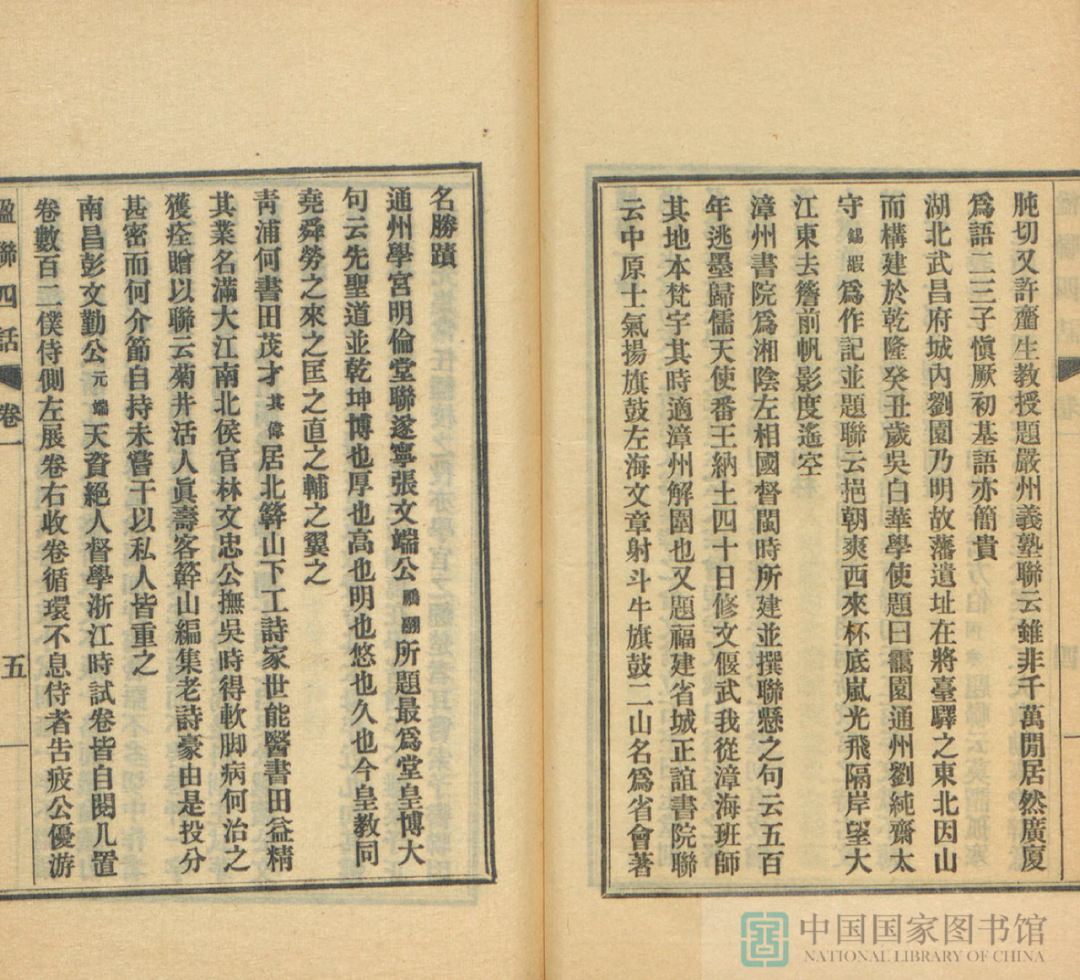 肫切又許齏生教授題嚴州義塾聯云雖非千萬閒居然廣廈
爲語二三子愼厥初基語亦簡貴
湖北武昌府城內劉園乃明故藩遺址在將臺驛之東北因山
而構建於乾隆癸丑歲吳白華學使題曰靄園通州劉純齋太
守錫嘏爲作記並題聯云挹朝爽西來杯底嵐光飛隔岸望大
江東去簷前帆影度遙空
漳州書院爲湘陰左相國督閩時所建並撰聯懸之句云五百
年逃墨歸儒天使番王納土四十日修文偃武我從漳海班師
其地本梵宇其時適漳州解圍也又題福建省城正誼書院聯
云中原士氣揚旗鼓左海文章射斗牛旗鼓二山名爲省會著
名勝蹟
通州學宮明倫堂聯遂寧張文端公鵬翮所題最爲堂皇博大
句云先聖道並乾坤博也厚也高也明也悠也久也今皇教同
堯舜勞之來之匡之直之輔之翼之
靑浦何書田茂才其偉居北簳山下工詩家世能醫書田益精
其業名滿大江南北侯官林文忠公撫吳時得軟脚病何治之
獲痊贈以聯云菊井活人眞壽客簳山編集老詩豪由是投分
甚密而何介節自持未嘗干以私人皆重之
南昌彭文勤公元端天資絕人督學浙江時試卷皆自閱几置
卷數百二僕侍側左展卷右收卷循環不息侍者告疲公優游
楹聯四話 卷一 五
中国国家图书馆
NATIONAL LIBRARY OF CHINA